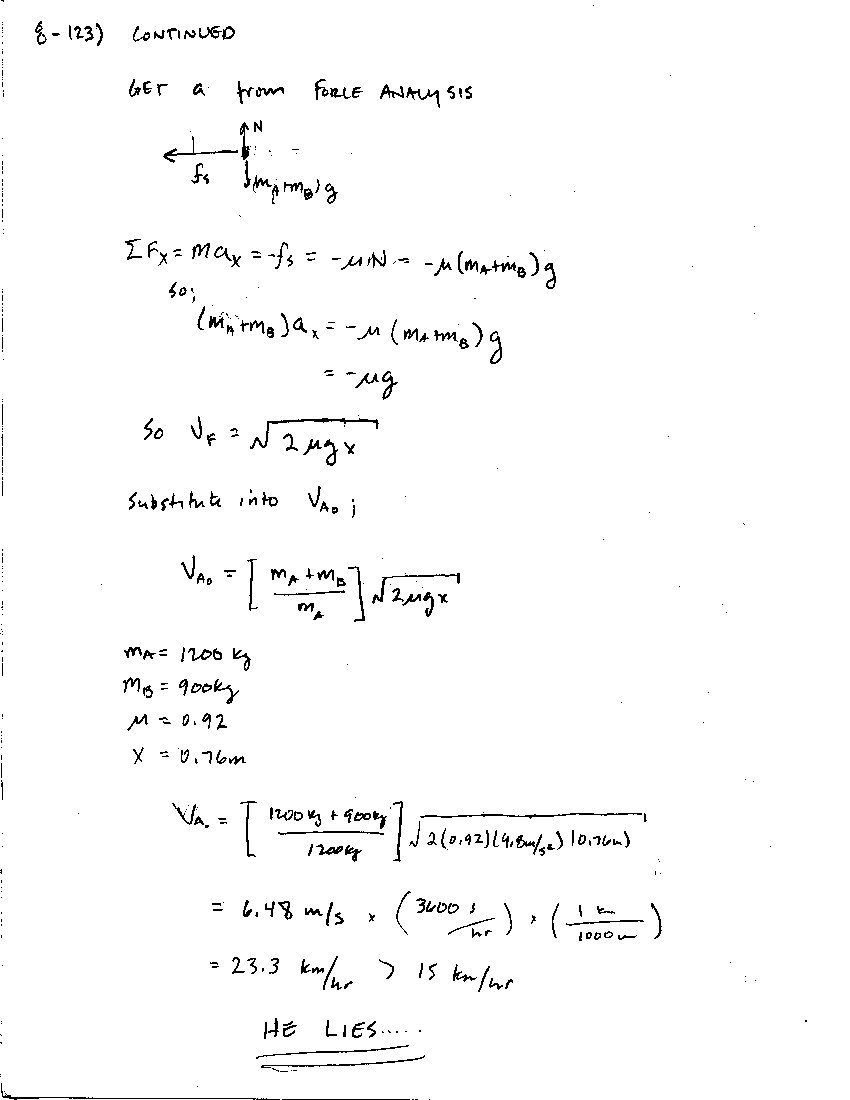 8-123) CONTINUED
GET a from FORCE ANALYSIS
N
fs
(mA+mB)g
ΣFx = max = -fs = -μN = -μ(mA+mB)g
so;
(mA+mB)ax = -μ(mA+mB)g
= -μg
So VF = √2μgx
Substitute into VA₀;
VA₀ = [mA+mB / mA] √2μgx
mA = 1200 kg
mB = 900kg
μ = 0.92
X = 0.76m
VA₀ = [1200kg + 900kg / 1200kg] √2(0.92)(9.8m/s²)(0.76m)
= 6.48 m/s × (3600 s/hr) × (1 km/1000m)
= 23.3 km/hr > 15 km/hr
HE LIES.....